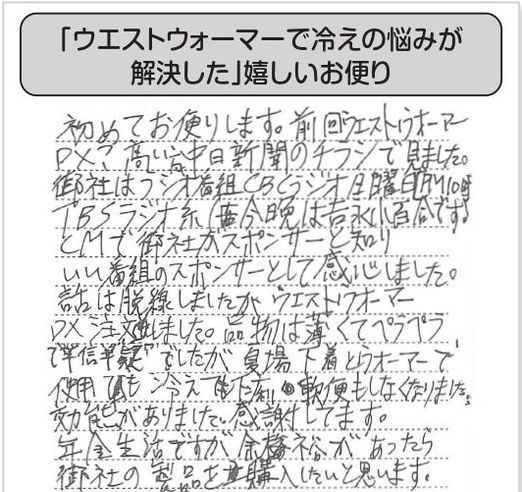 「ウエストウォーマーで冷えの悩みが
解決した」嬉しいお便り
初めてお便りします。前回ウエストウオーマー
DX、高い 中日新聞のチラシで見ました。
御社はラジオ番組CBCラジオ日曜日 10時
TBSラジオ系 今晩は吉永小百合です。
CMで御社がスポンサーと知り
いい番組のスポンサーとして感心しました。
話は脱線しましたが ウエストウォーマー
DX 注文しました。品物は薄くてペラペラ
で"半信半疑"でしたが 夏場 下着とウオーマーで
使用 も冷え 下痢 軟便もしなくなりました。
効能がありました。感謝してます。
年金生活ですが 余裕 があったら
御社の 製品を 購入したいと思います。